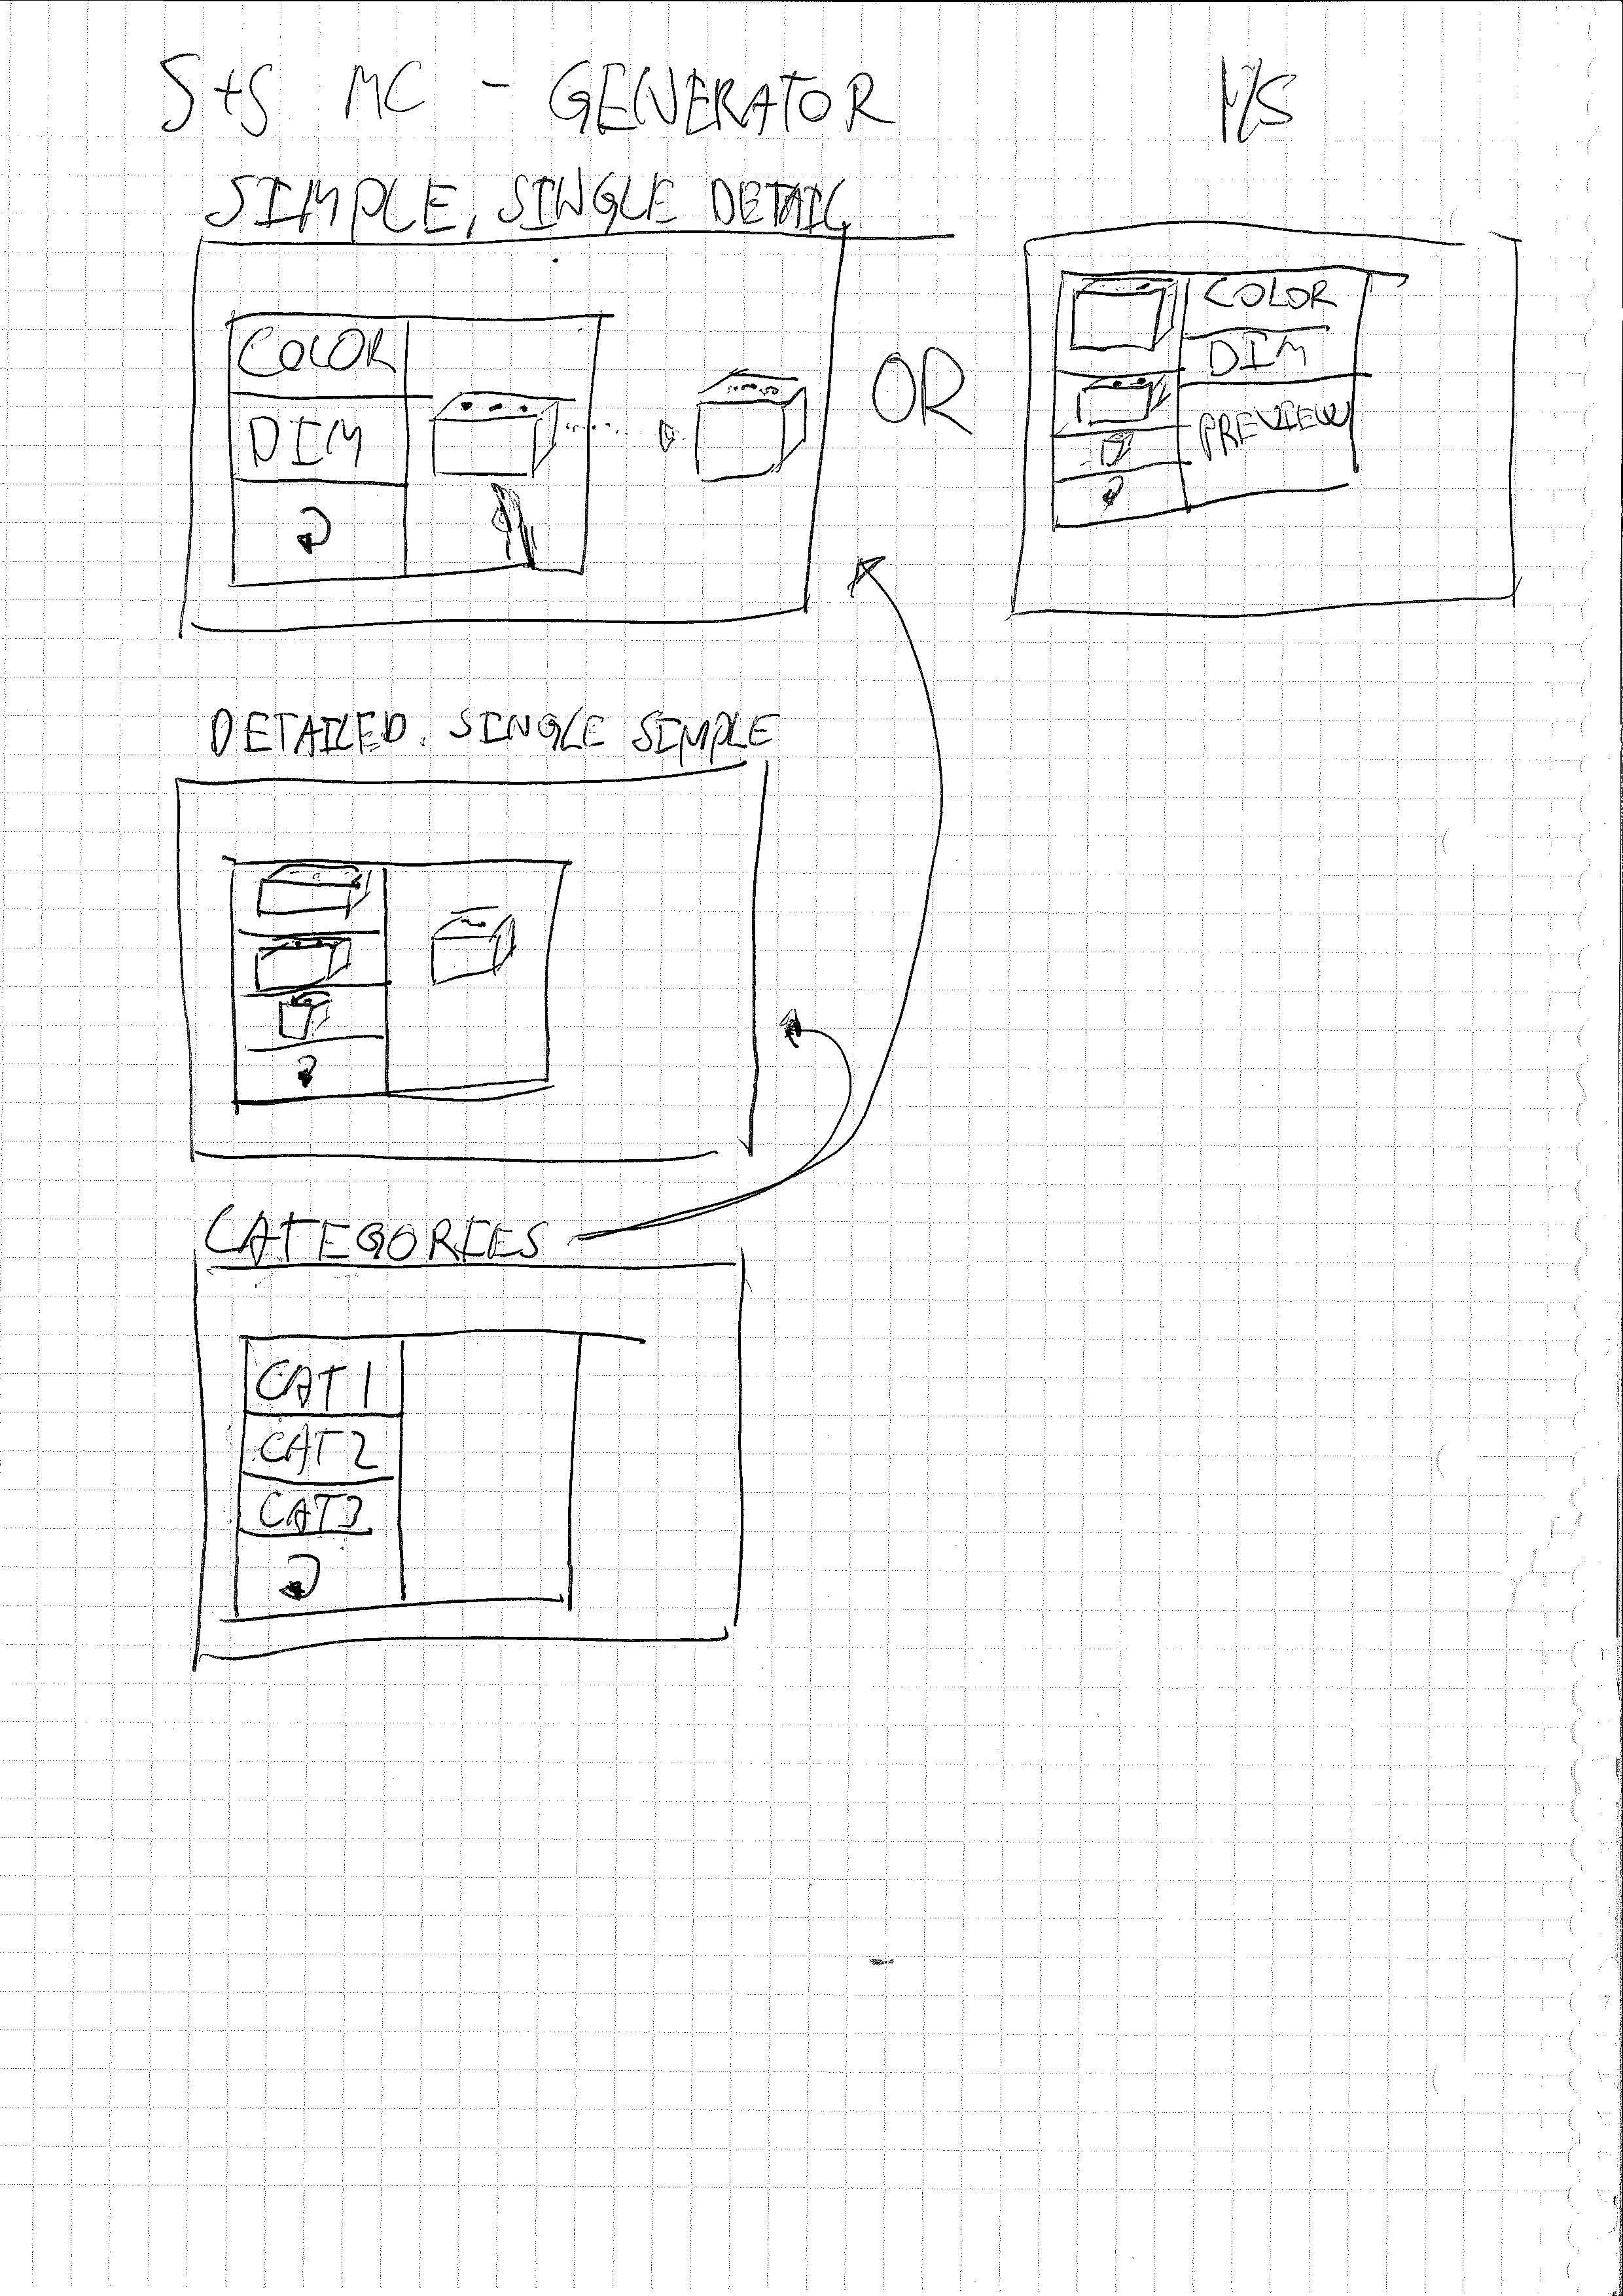 S+S MC - GENERATOR
SIMPLE, SINGLE DETAIL
COLOR
DIM
OR
COLOR
DIM
PREVIEW
DETAILED. SINGLE SIMPLE
CATEGORIES
CAT1
CAT2
CAT3